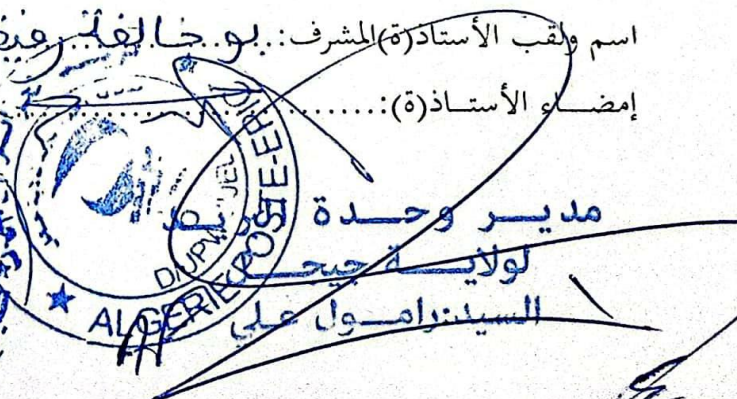 اسم ولقب الأستاذ(ة)المشرف: بوخالفة
إمضاء الأستاذ(ة):
مدير وحدة البريد
لولاية جيجل
السيد:رامول علي
ALGERIE POSTE-EPIC
D/UPW "JEL